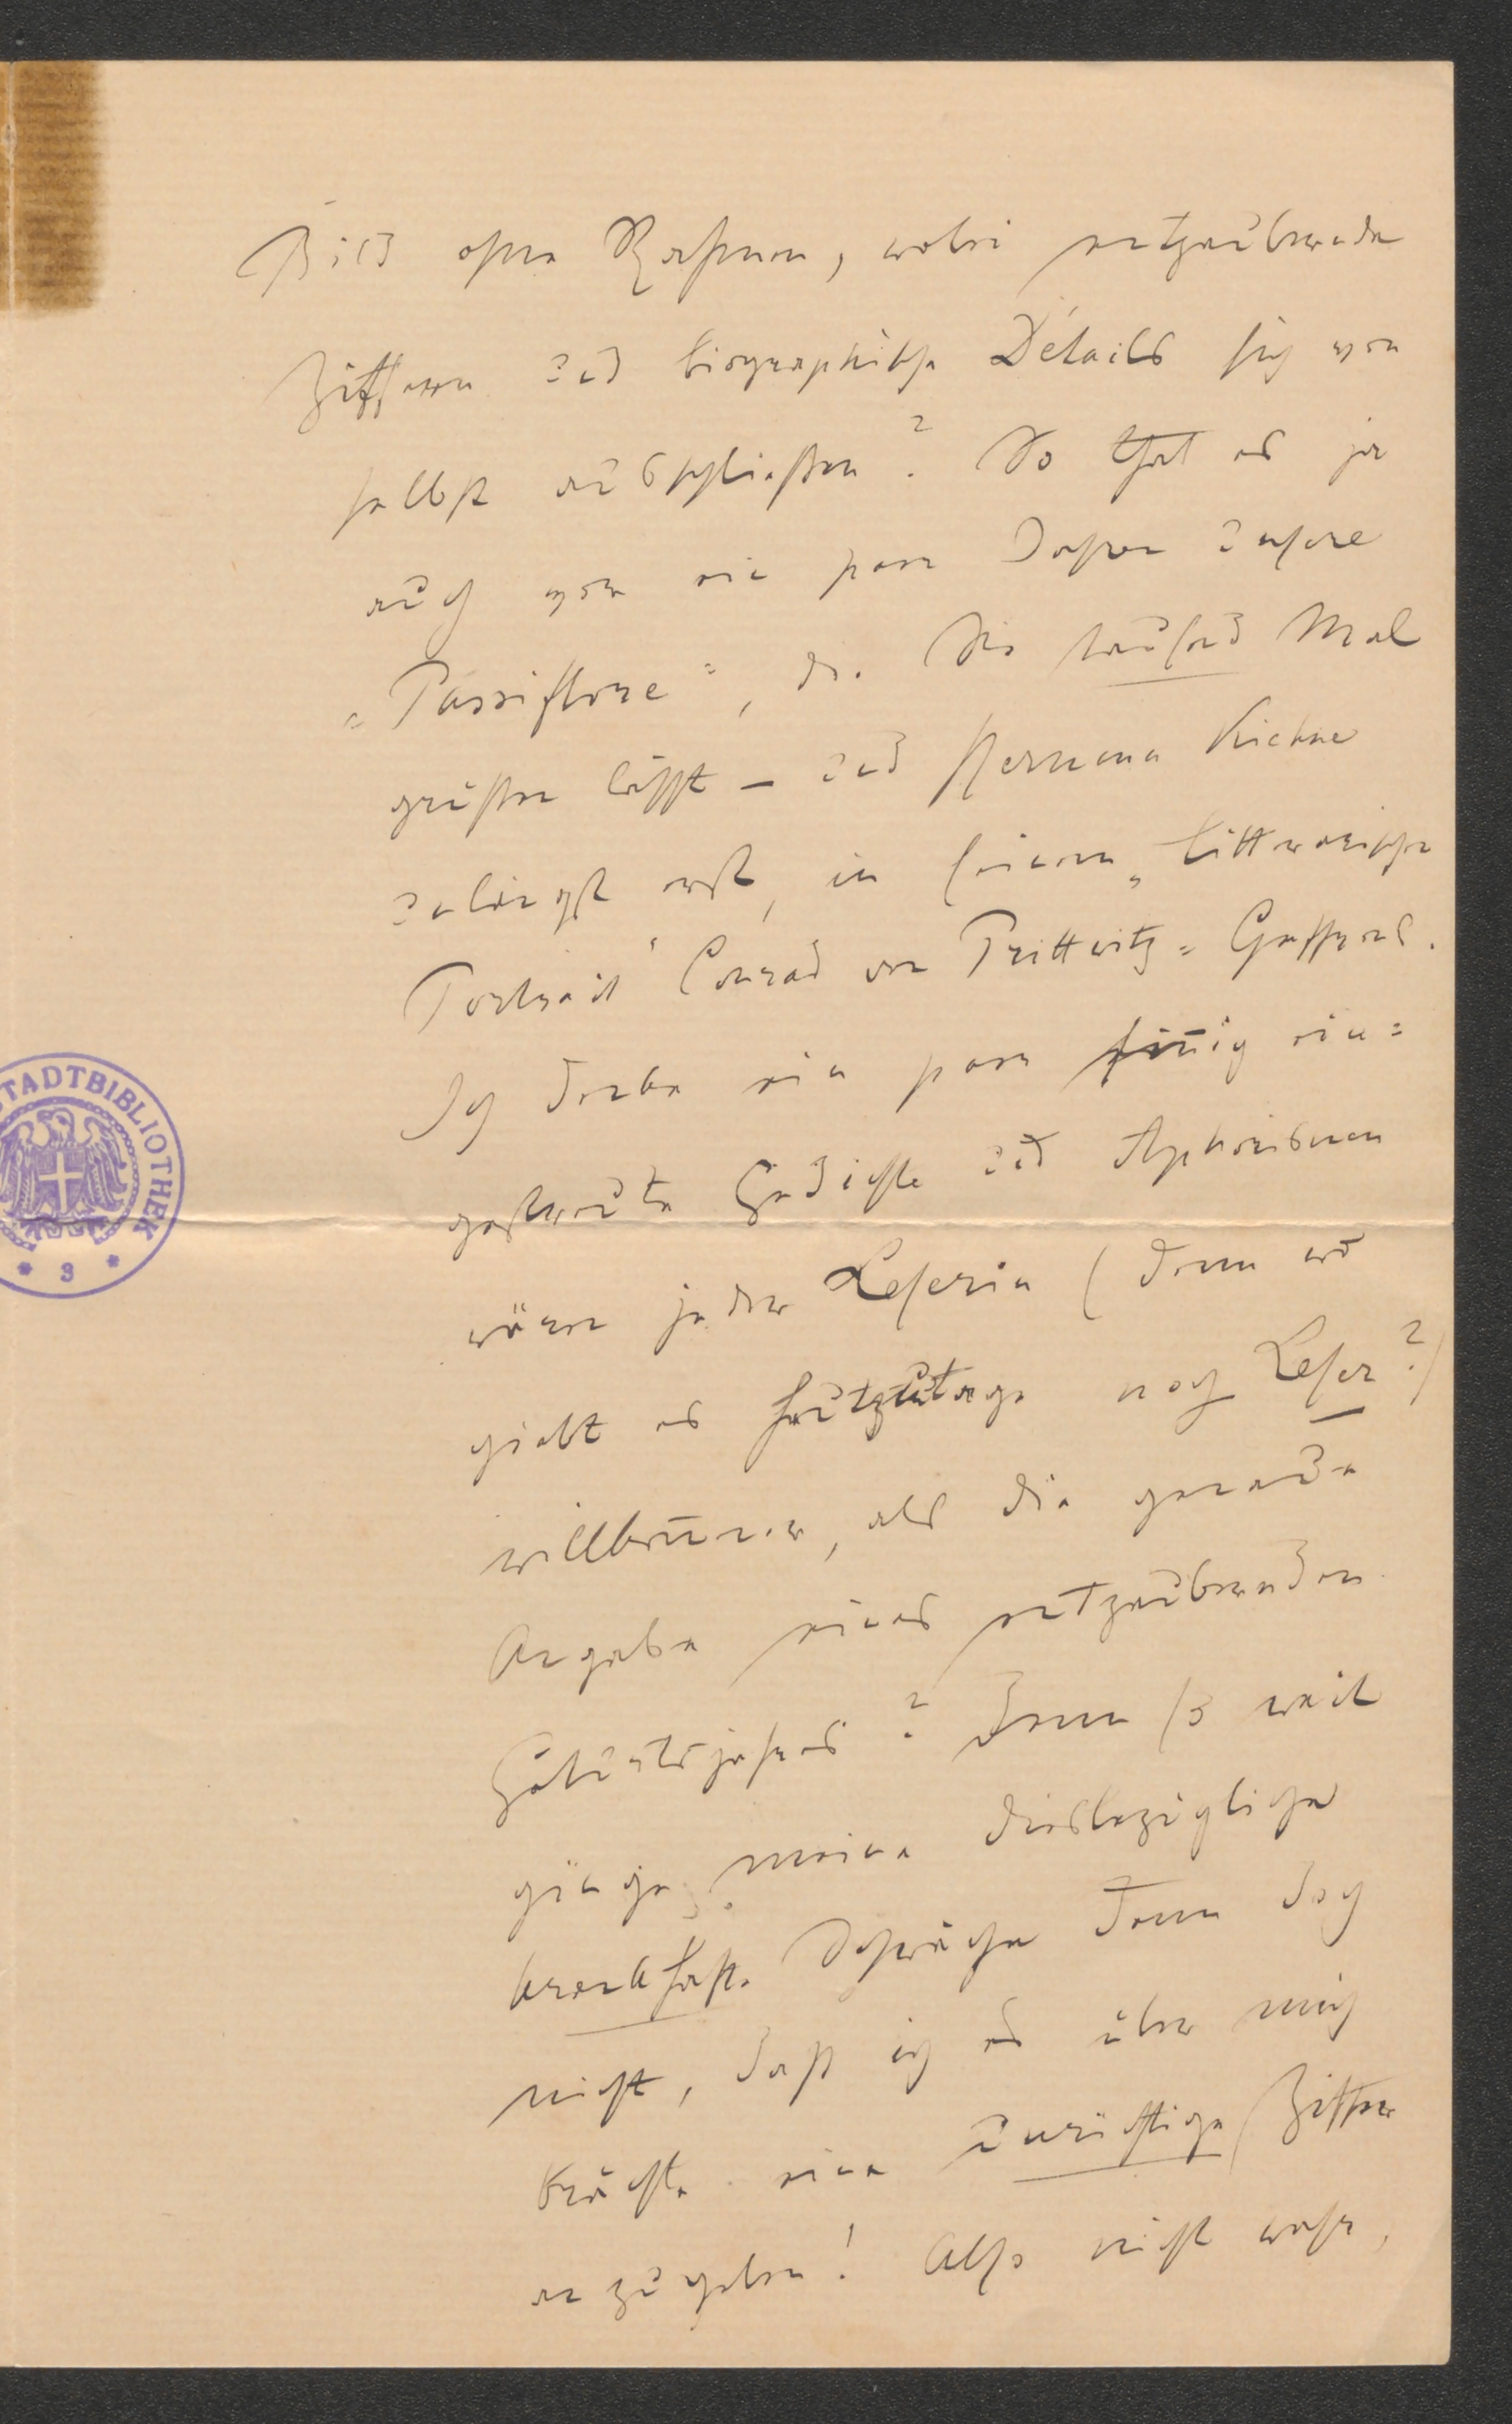 Bild ohne Rahmen, wobei entzaubernde
Ziffern und biographische Détails sich von
selbst ausschließen? So that es ja
auch vor ein paar Jahren unsere
„Passiflore“, die Sie tausend Mal
grüßen läßt – und Hermann Kiehne
unlängst erst, in seinem „litterarischen
Portrait“ Conrad von Prittwitz-Gaffron's.
Ich denke ein paar sinnig ein=
gestreute Gedichte und Aphorismen
wären jeder Leserin (denn wo
giebt es heutzutage noch Leser?)
willkommener, als die genaue
Angabe eines entzaubernden
Geburtsjahres? Denn so weit
ginge meine diesbezügliche
krankhafte Schwäche denn doch
nicht, daß ich es über mich
brächte eine unrichtige Ziffer
anzugeben! Also nicht wahr,
STADTBIBLIOTHEK
* 3 *